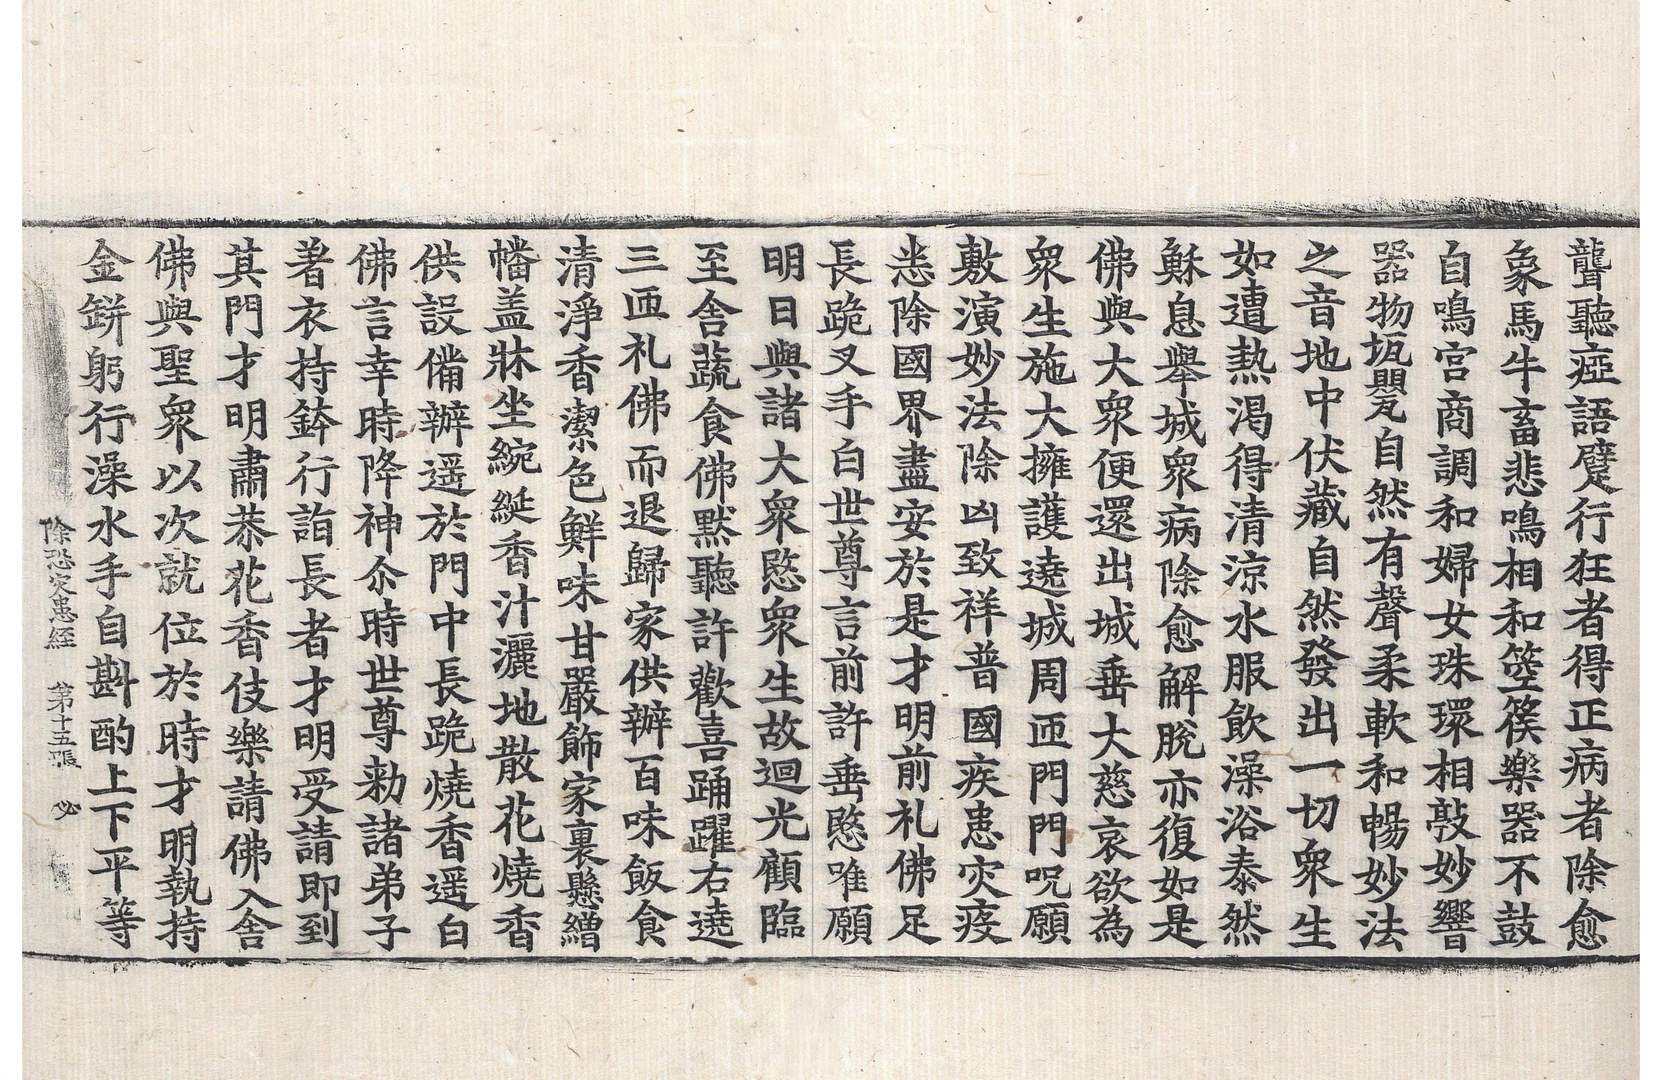 聾聽瘂語躄行狂者得正病者除愈
象馬牛畜悲鳴相和箜篌樂器不鼓
自鳴宮商調和婦女珠環相敲妙響
器物㼛甖自然有聲柔軟和暢妙法
之音地中伏藏自然發出一切衆生
如遭熱渴得清涼水服飲澡浴泰然
穌息舉城衆病除愈解脫亦復如是
佛與大衆便還出城垂大慈哀欲為
衆生施大擁護遶城周匝門門呪願
敷演妙法除凶致祥普國疾患灾疫
悉除國界盡安於是才明前礼佛足
長跪叉手白世尊言前許垂愍唯願
明日與諸大衆愍衆生故迴光顧臨
至舍蔬食佛默聽許歡喜踊躍右遶
三匝礼佛而退歸家供辦百味飯食
清淨香潔色鮮味甘嚴飾家裏懸繒
幡盖牀坐綩綖香汁灑地散花燒香
供設備辦遥於門中長跪燒香遥白
佛言幸時降神尒時世尊勑諸弟子
著衣持鉢行詣長者才明受請即到
其門才明肅恭花香伎樂請佛入舍
佛與聖衆以次就位於時才明執持
金鉼躬行澡水手自斟酌上下平等
除恐灾患經 第十五張 必